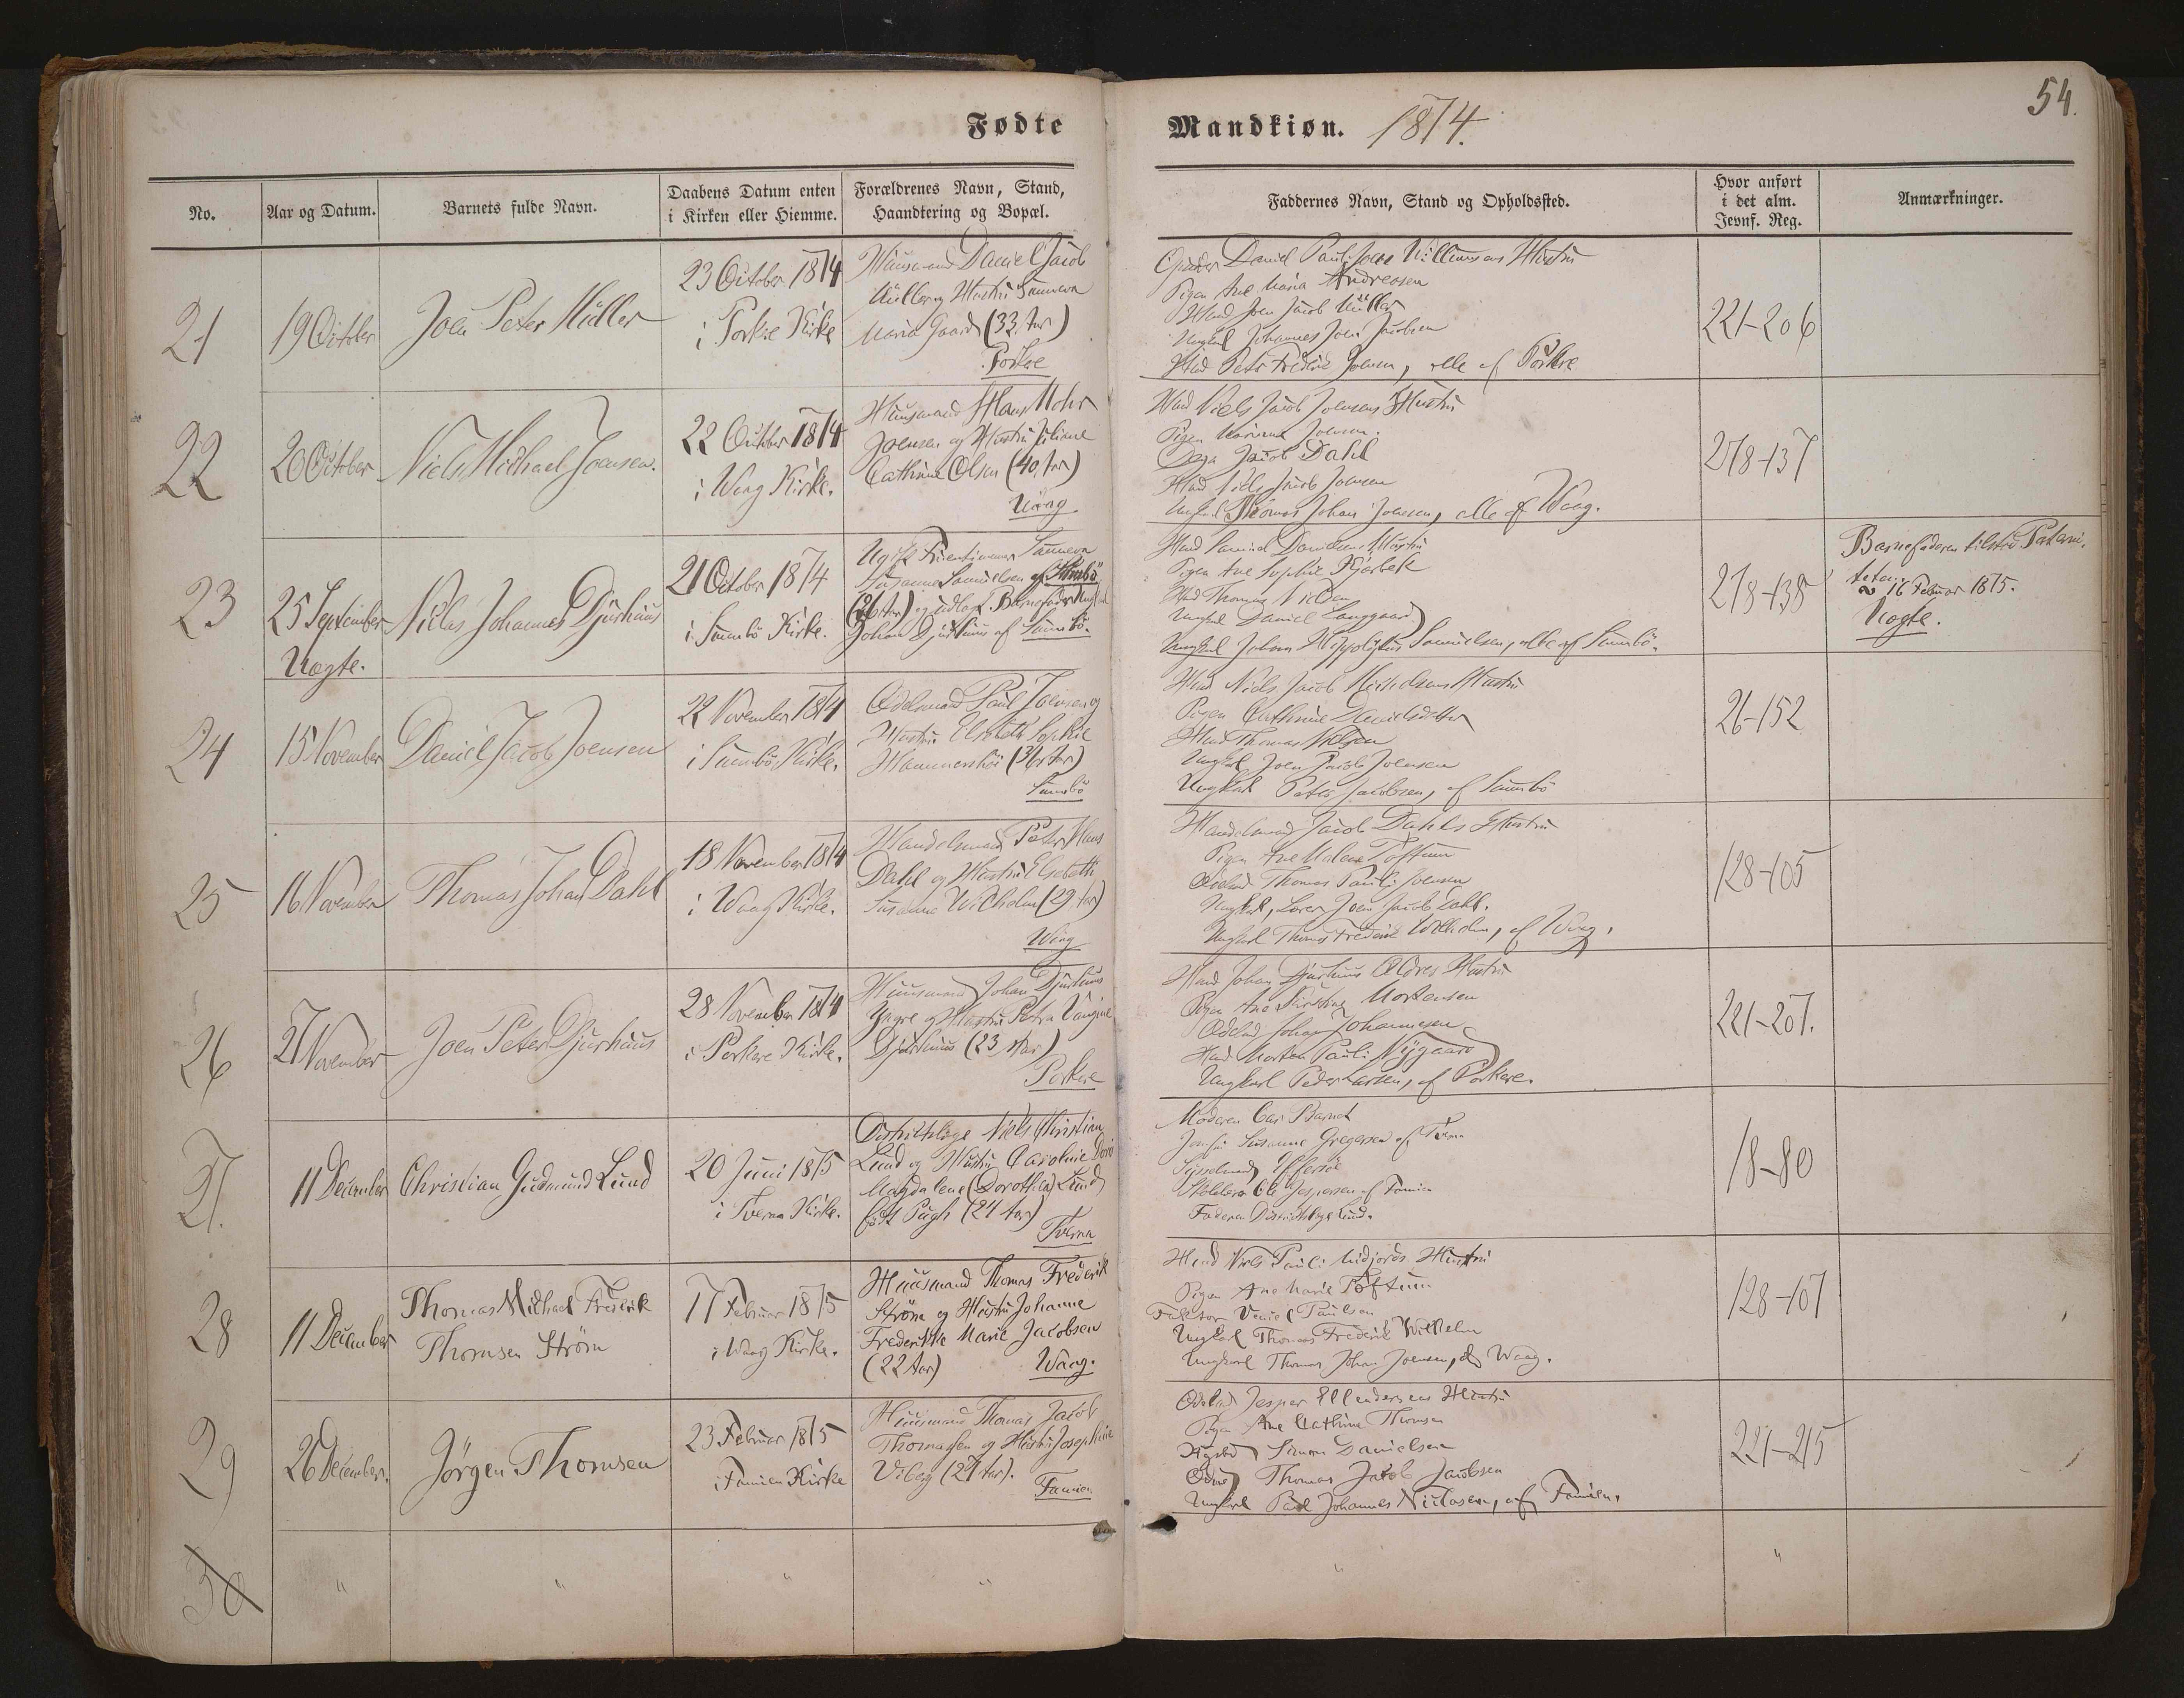 Fødte
Mandkiøn. 1874.
54.
No.
Aar og Datum.
Barnets fulde Navn.
Daabens Datum enten
i Kirken eller Hiemme.
Forældrenes Navn, Stand,
Haandtering og Bopæl.
Faddernes Navn, Stand og Opholdssted.
Hvor anført
i det alm.
Jevnf. Reg.
Anmærkninger.
21
19 October
Joen Peter Müller
23 October 1874
i Porkere Kirke
Huusmand Daniel Jacob
Müller og Hustru Sunneva
Maria (33 Aar)
Porkere
Daniel Pauli Hustru
Pigen Ane Maria Andreasen
Joen Jacob Müller
Ungkarl Johannes Joen Jacobsen
Peter Frederik Joensen, alle af Porkere
221-206
22
20 October
Niels Michael Joensen.
22 October 1874
i Waag Kirke.
Huusmand Hans Mohr
Joensen og Hustru Juliane
Cathrine Olsen (40 Aar)
Waag
Niels Jacob Joensens Hustru
Pigen Joensen.
Jacob Dahl
Niels Jacob Joensen
Ungkarl Thomas Johan Joensen, alle af Waag.
218-137
23
25 September
Uægte.
Niclas Johannes Djurhuus
21 October 1874
i Sumbö Kirke.
Ugift Fruentimmer Sunneva
Susanne Samuelsen af Sumbö
(26 Aar) og udlagt Barnefader Ungkarl
Johan Djurhuus af Sumbö.
Samuel Danielsens Hustru
Pigen Ane Sophie Kjærbek
Thomas Nielsen
Ungkarl Daniel Langgaard
Ungkarl Johan Hippolytus Samuelsen, alle af Sumbö.
218-138
Barnefaderen tilstod Patern.
16 Februar 1875.
Uægte.
24
15 November
Daniel Jacob Joensen
22 November 1874
i Sumbö Kirke.
Odelsmand Paul Joensen og
Hustru Elsebeth Sophie
Hammershöi (36 Aar)
Sumbö
Niels Jacob Hustru
Pigen Cathrine Danielsdatter
Thomas Nielsen
Ungkarl Joen Jacob Joensen
Ungkarl Peter Jacobsen, af Sumbö
26-152
25
16 November
Thomas Johan Dahl
18 November 1874
i Waag Kirke.
Handelsmand Peter Hans
Dahl og Hustru Elsebeth
Susanne Wilhelm (29 Aar)
Waag
Handelsmand Jacob Dahls Hustru
Pigen Ane Malene Toftum
Thomas Pauli Joensen
Ungkarl, Lærer Joen Jacob Dahl.
Ungkarl Thomas Frederik Wilhelm, af Waag.
128-105
26
27 November
Joen Peter Djurhuus
28 November 1874
i Porkere Kirke.
Huusmand Johan Djurhuus
Yngre og Hustru Petra
Djurhuus (23 Aar)
Porkere
Johan Djurhuus Ældres Hustru
Pigen Ane Mortensen
Johan Johannesen
Morten Pauli Nygaard
Ungkarl Peder Larsen, af Porkere.
221-207.
27.
11 December
Christian Gudmund Lund
20 Juni 1875
i Tveraa Kirke.
Districtslæge Niels Christian
Lund og Hustru Caroline
Magdalene (Dorothea) Lund
født Pugh (24 Aar)
Tveraa
Moderen bar Barnet
Susanne Gregersen af Tveraa
Sysselmand Effersöe
Ole Jespersen af Famien
Faderen Districtslæge Lund.
18-80
28
11 December
Thomas Michael Frederik
Thomsen Ström
17 Februar 1875
i Waag Kirke.
Huusmand Thomas Frederik
Ström og Hustru Johanne
Frederikke Marie Jacobsen
(22 Aar)
Waag.
Niels Pauli Midjords Hustru
Pigen Ane Marie Toftum
Faktor Poulsen
Ungkarl Thomas Frederik Wilhelm
Ungkarl Thomas Johan Joensen, af Waag.
128-107
29
26 December.
Jörgen Thomsen
23 Februar 1875
i Famien Kirke
Huusmand Thomas Jacob
Thomassen og Hustru Josephine
Viberg (27 Aar).
Famien
Jesper Ellendersens Hustru
Pigen Ane Cathrine Thomsen
Simon Danielsen
Thomas Jacob Jacobsen
Ungkarl Paul Johannes Niclasen, af Famien.
221-215
30
" " " " " "